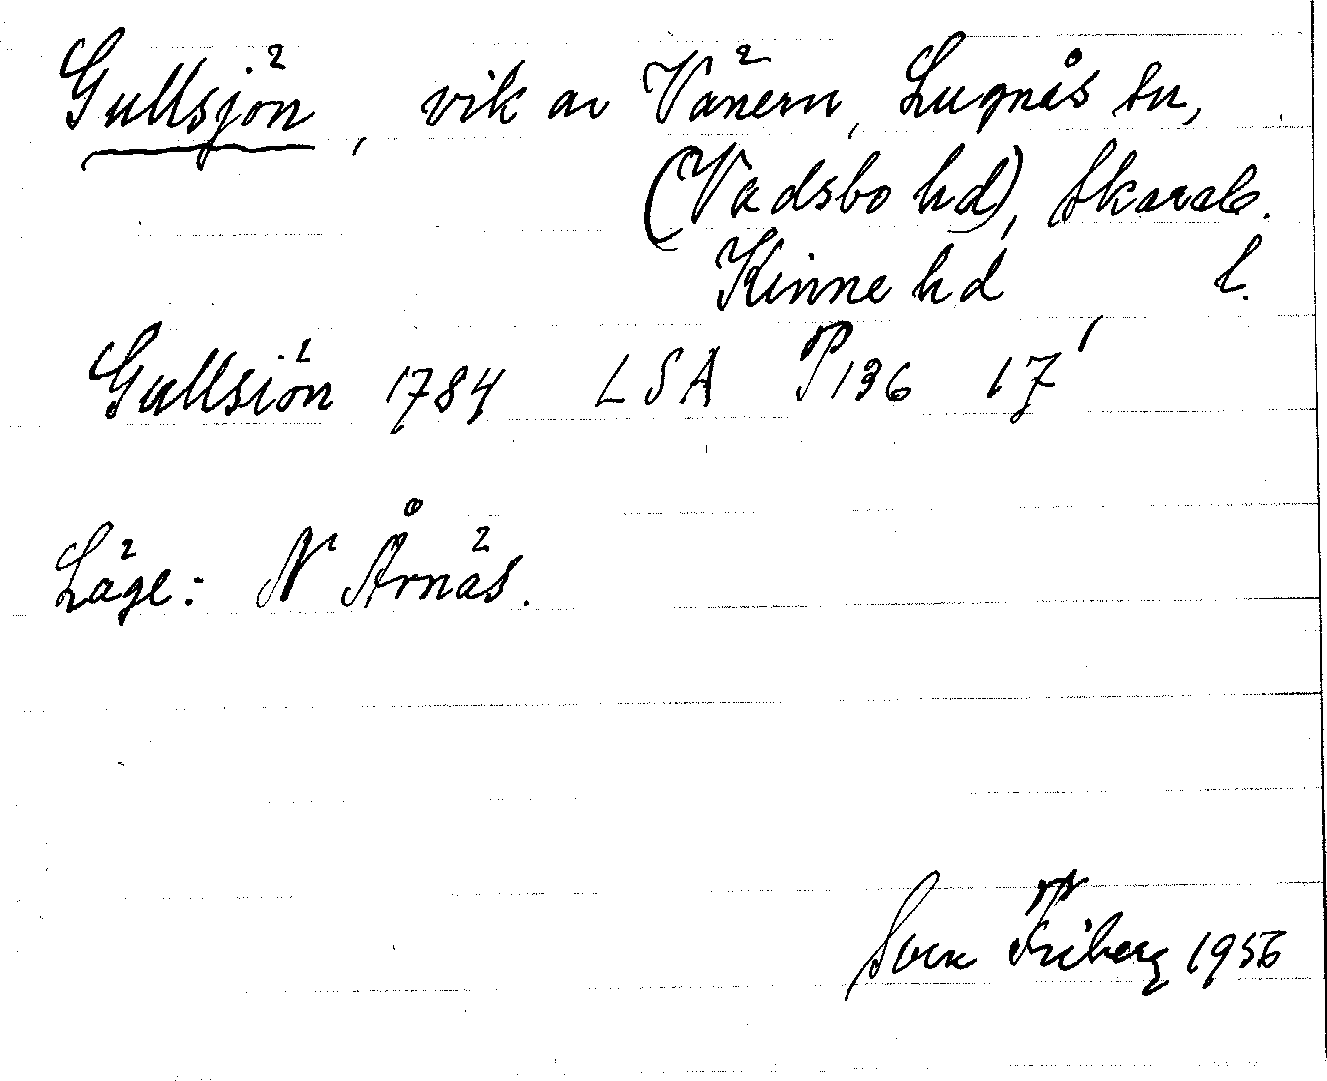 Gullsjön, vik av Vänern, Lugnås sn,
(Vadsbo hd), Skarab.
Kinne hd l.
Gullsiön 1784 LSA P136 17'
Läge: N Årnäs.
Sven Friberg 1956